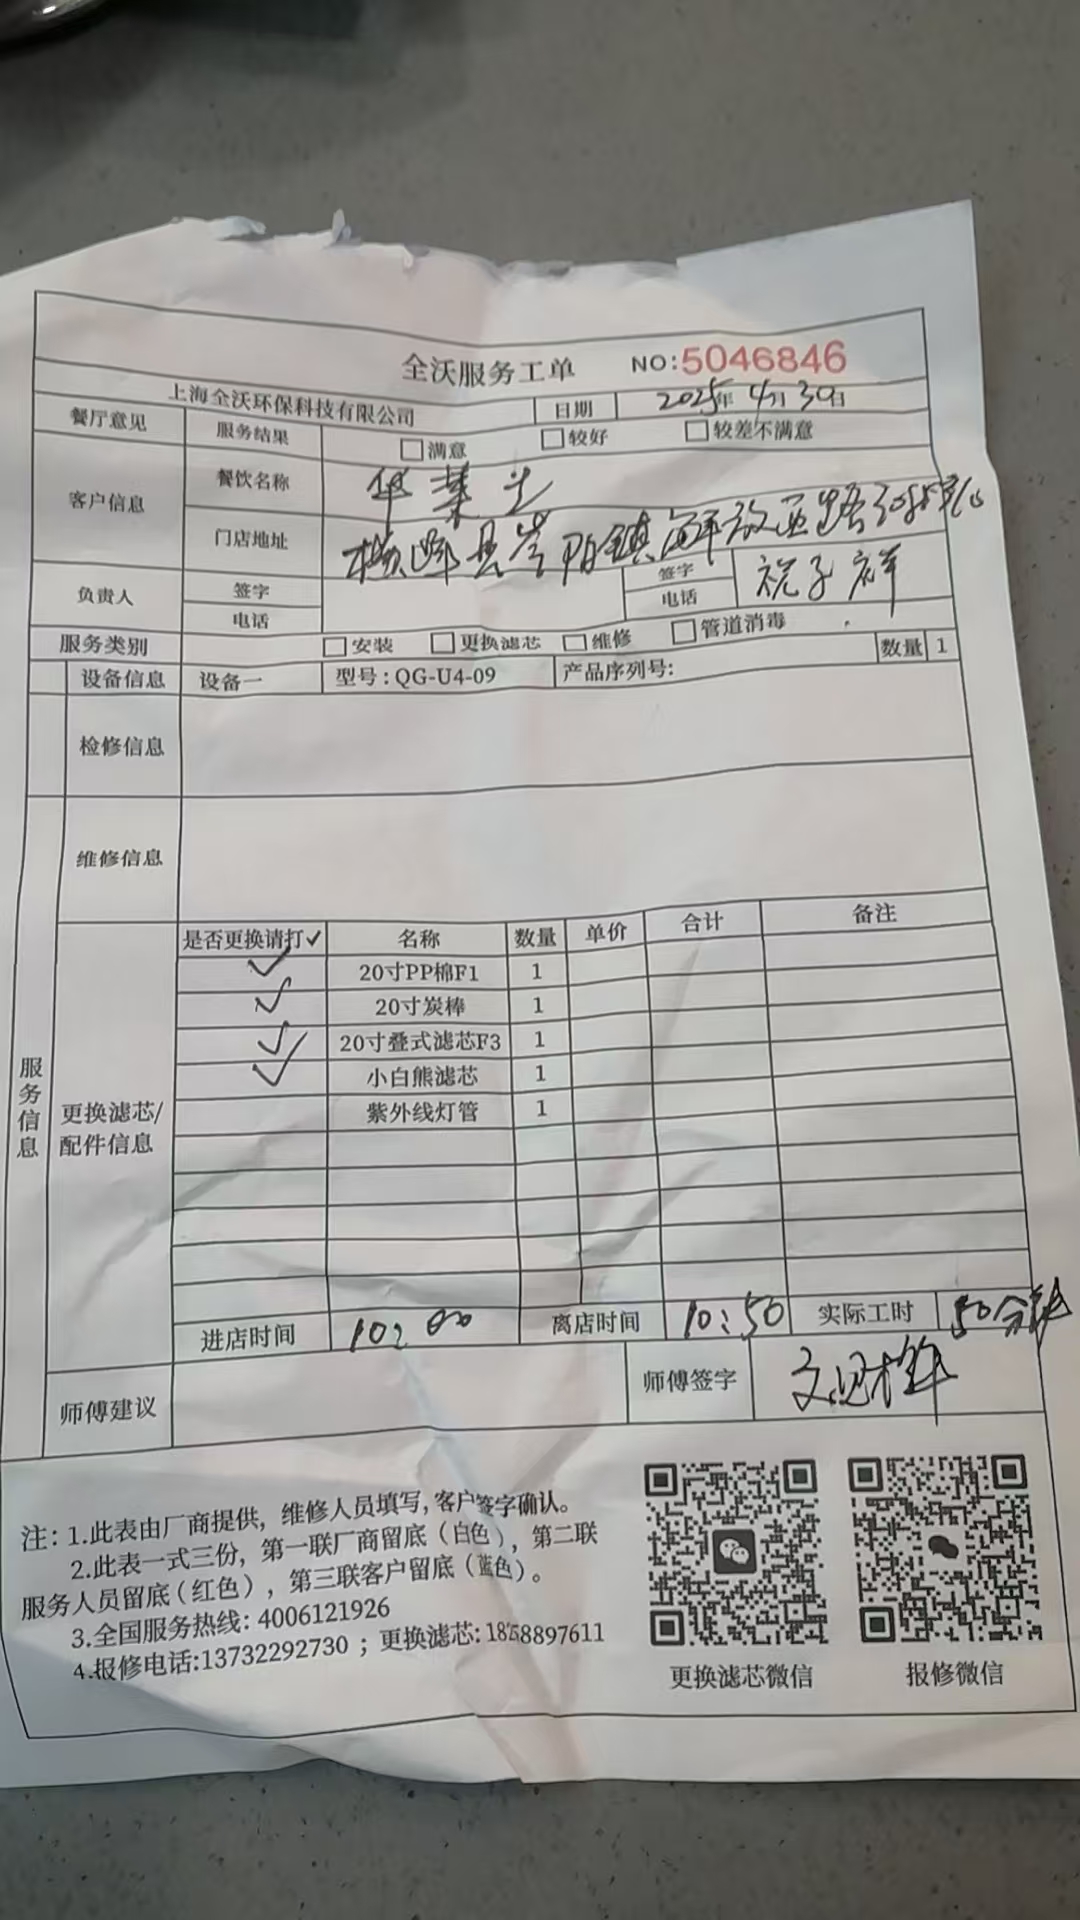 全沃服务工单 NO:5046846
上海全沃环保科技有限公司 日期 2025年4月30日
餐厅意见 服务结果 满意 较好 较差不满意
客户信息 餐饮名称 华莱士
门店地址 横峰县岑阳镇解放西路
负责人 签字 签字 祝子祥
电话 电话
服务类别 安装 更换滤芯 维修 管道消毒 数量 1
设备信息 设备一 型号:QG-U4-09 产品序列号:
检修信息
维修信息
服务信息
更换滤芯/配件信息
是否更换请打✓ 名称 数量 单价 合计 备注
✓ 20寸PP棉F1 1
✓ 20寸炭棒 1
✓ 20寸叠式滤芯F3 1
✓ 小白熊滤芯 1
紫外线灯管 1
进店时间 10:00 离店时间 10:50 实际工时 50分钟
师傅建议 师傅签字
注:1.此表由厂商提供,维修人员填写,客户签字确认。
2.此表一式三份,第一联厂商留底(白色),第二联
服务人员留底(红色),第三联客户留底(蓝色)。
3.全国服务热线:4006121926
4.报修电话:13732292730;更换滤芯:18758897611
更换滤芯微信 报修微信